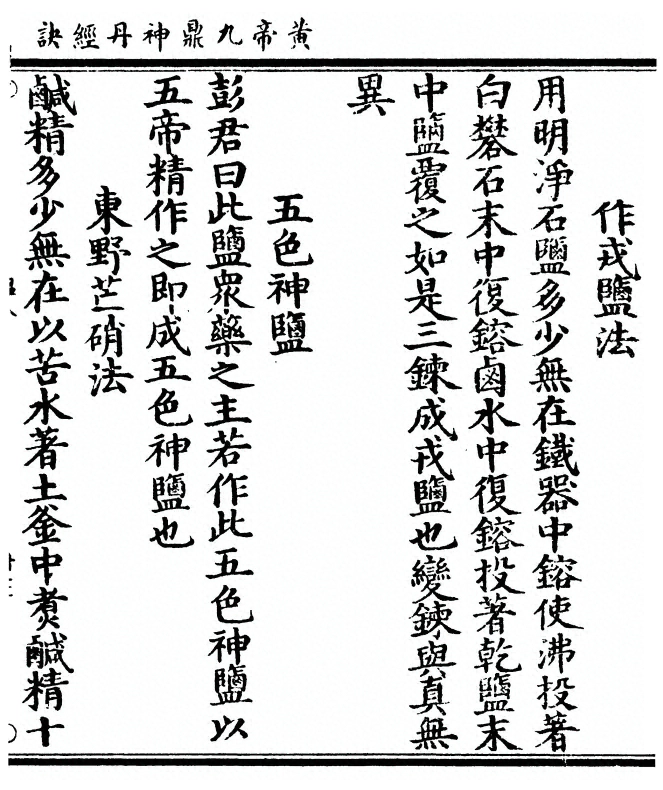 黃帝九鼎神丹經訣
作戎鹽法
用明淨石鹽多少無在鐵器中鎔使沸投著
白礬石末中復鎔鹵水中復鎔投著乾鹽末
中鹽覆之如是三鍊成戎鹽也變鍊與真無
異
五色神鹽
彭君曰此鹽衆藥之主若作此五色神鹽以
五帝精作之即成五色神鹽也
東野芒硝法
鹹精多少無在以苦水著土釜中煑鹹精十